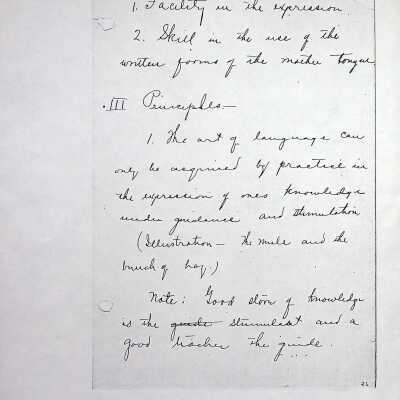 1. Facility in the expression
2. Skill in the use of the
written forms of the mother tongue
III Principles—
1. The art of language can
only be acquired by practice in
the expression of ones knowledge
under guidance and stimulation
(Illustration — the mule and the
bunch of hay.)
Note: Good store of knowledge
is the guide stimulant and a
good teacher the guide.